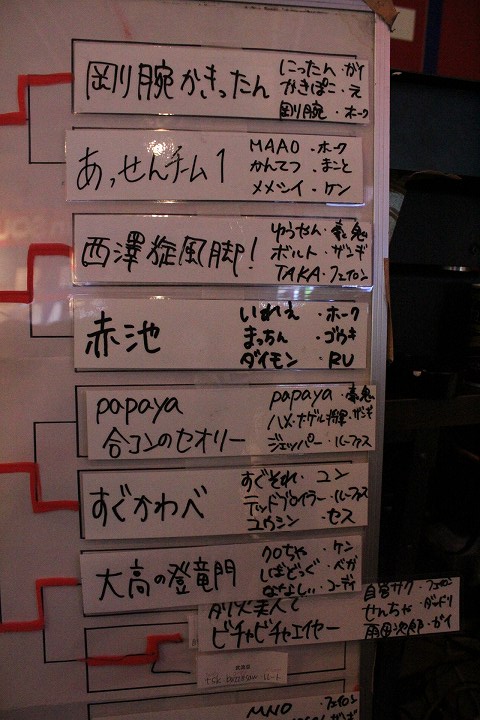 剛腕かきったん
にったん・ガイ
かきぽこ・え
剛腕・ホーク
あっせんチーム1
MAAO・ホーク
かんてつ・まこと
メメシイ・ケン
西澤旋風脚!
ゆうやん・豪鬼
ボルト・ザンギ
TAKA・フェイロン
赤池
いれえ・ホーク
まっちん・ゴウキ
ダイモン・RU
papaya
合コンのセオリー
papaya・豪鬼
ハメ・ナゲル将軍・ザンギ
ジェッパー・ルーファス
すぐかわべ
すぐそれ・ユン
デッドプロイラー・ルーファス
ユウシン・セス
大高の登竜門
クロちゃ・ケン
しばどっぐ・ベガ
ななしい・コーディ
ビチャビチャエイヤー
自営サク・フェイロン
せんちゃ・ダッドリ
雨田次郎・ガイ
MNO・フェイロン